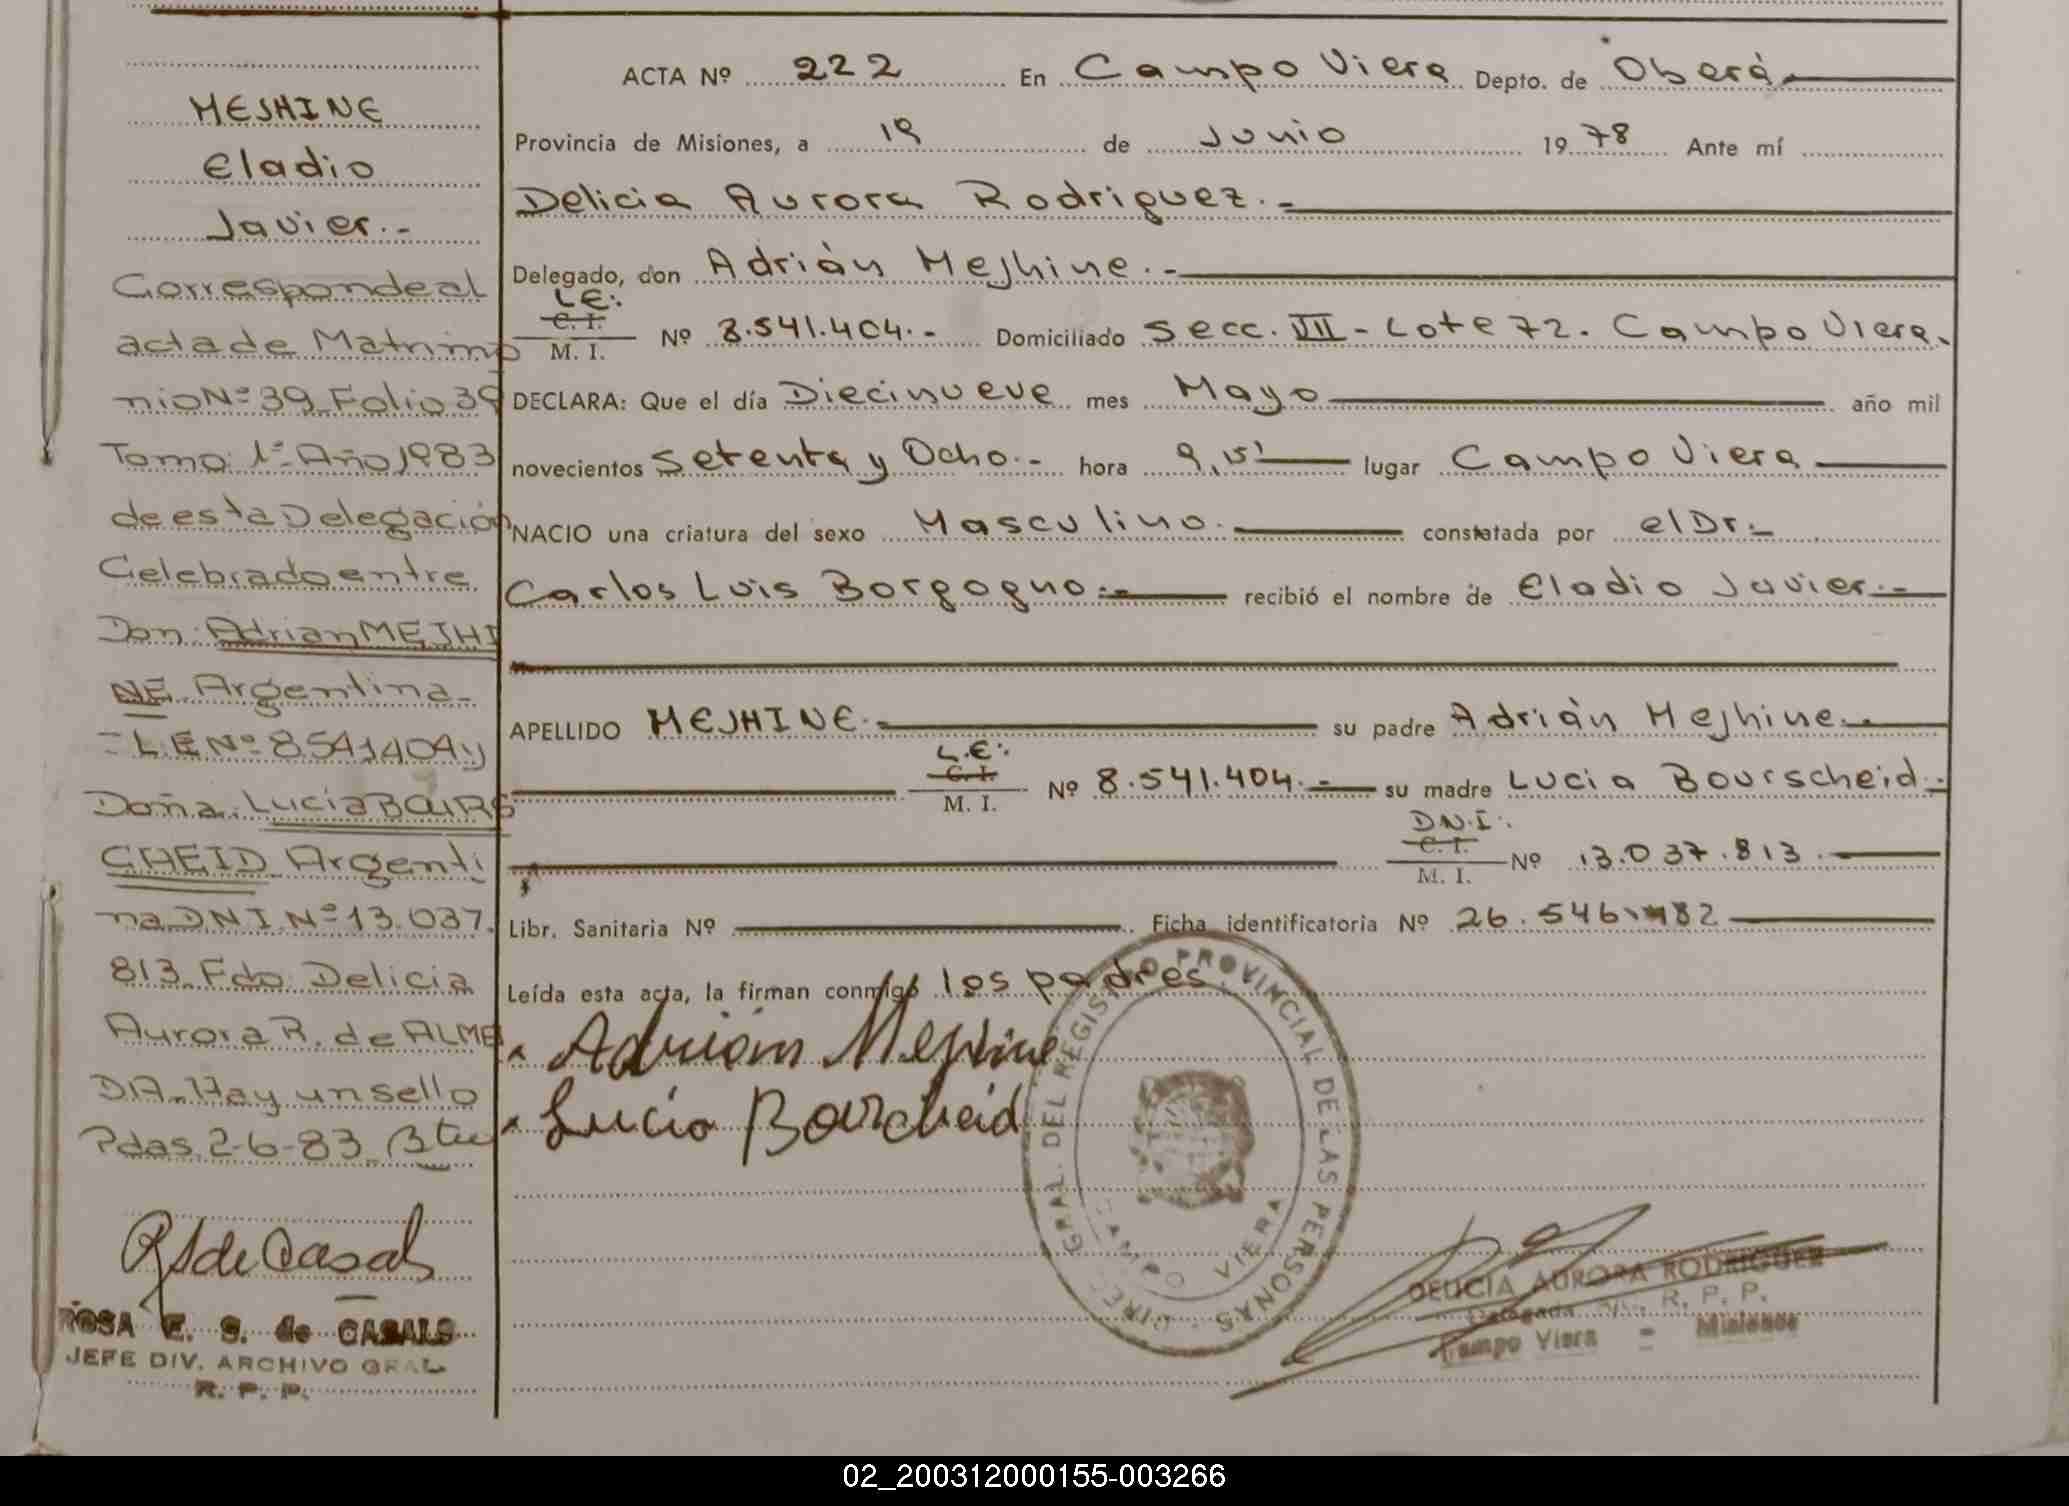 MEJHINE
Eladio
Javier.-
Corresponde al
acta de Matrimo
nio Nº 39 Folio 39
Tomo: 1º Año 1983
de esta Delegación
Celebrado entre
Don: Adrian MEJHI
NE Argentina-
- L.E Nº 8541404 y
Doña: Lucia BOURS
CHEID Argenti
na DNI Nº 13.037.
813. Fdo: Delicia
Aurora R. de ALME
DA. Hay un sello
Pdas. 2-6-83
ROSA E. S. de CASALS
JEFE DIV. ARCHIVO GRAL
R. P. P.
ACTA Nº 222 En Campo Viera Depto. de Oberá
Provincia de Misiones, a 19 de Junio 1978 Ante mí
Delicia Aurora Rodriguez.-
Delegado, don Adrián Mejhine.-
L.E:
C. I.
M. I. Nº 8.541.404.- Domiciliado Secc. VII - Lote 72. Campo Viera.
DECLARA: Que el día Diecinueve mes Mayo año mil
novecientos Setenta y Ocho.- hora 9,15' lugar Campo Viera
NACIO una criatura del sexo Masculino.- constatada por el Dr.-
Carlos Luis Borgogno.- recibió el nombre de Eladio Javier.-
APELLIDO MEJHINE.- su padre Adrián Mejhine.-
L.E:
C. I.
M. I. Nº 8.541.404.- su madre Lucia Bourscheid.-
D.N.I:
C. I.
M. I. Nº 13.037.813.-
Libr. Sanitaria Nº Ficha identificatoria Nº 26.546.482
Leída esta acta, la firman conmigo los padres
Adrián Mejhine
Lucia Bourcheid
DIREC. GRAL. DEL REGISTRO PROVINCIAL DE LAS PERSONAS
CAMPO VIERA
DELICIA AURORA RODRIGUEZ
Delegada R. P. P.
Campo Viera - Misiones
02_200312000155-003266